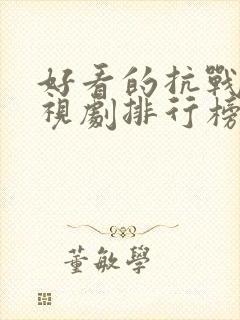 好看的抗戰
視劇排行榜
董敏學